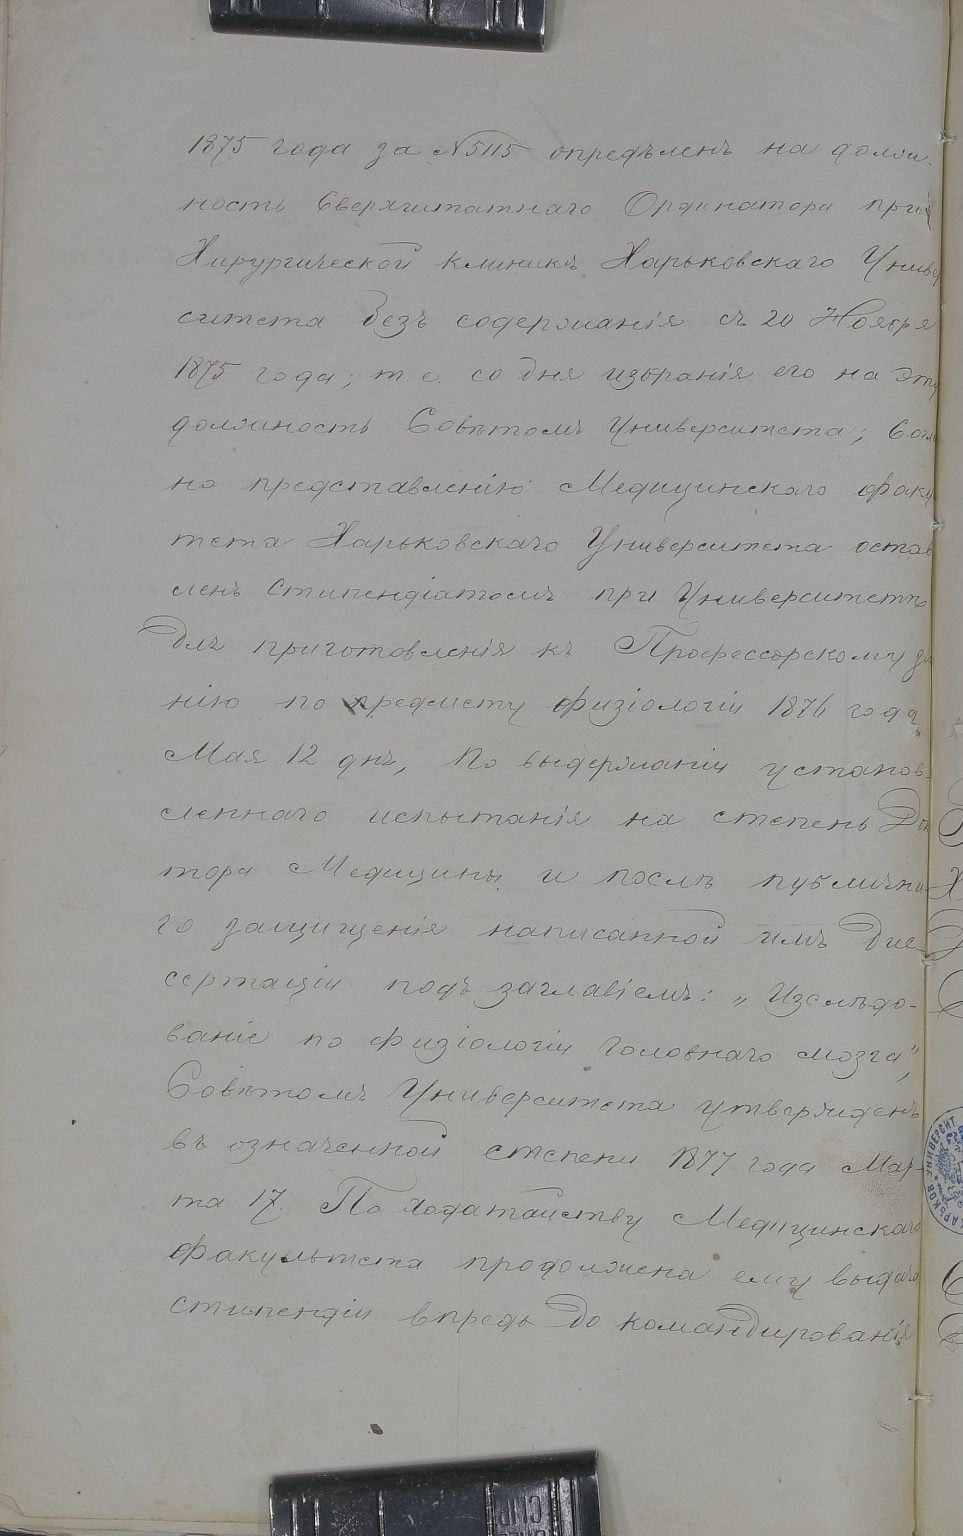 1875 года за №5115 опредѣленъ на долж-
ность Сверхштатнаго Ординатора при
Хирургической клиникѣ Харьковскаго Универ
ситета безъ содержанія съ 20 Ноября
1875 года; т. е. со дня избранія его на эту
должность Совѣтомъ Университета; Согла
но представленію Медицинскаго Факу
тета Харьковскаго Университета остав
ленъ Стипендіатомъ при Университетѣ
для приготовленія къ Профессорскому зв
нію по предмету Физіологіи 1876 года
Мая 12 дня; По выдержаніи установ-
леннаго испытанія на степень Док
тора Медицины и послѣ публична-
го защищенія написанной имъ Дис-
сертаціи подъ заглавіемъ: „Изслѣдо-
ваніе по Физіологіи головнаго мозга",
Совѣтомъ Университета утвержденъ
въ означенной степени 1877 года Мар-
та 17. По ходатайству Медицинскаго
Факультета продолжена ему выдача
стипендіи впредь до командированія
ХАРЬКОВ. УНИВЕРСИТ